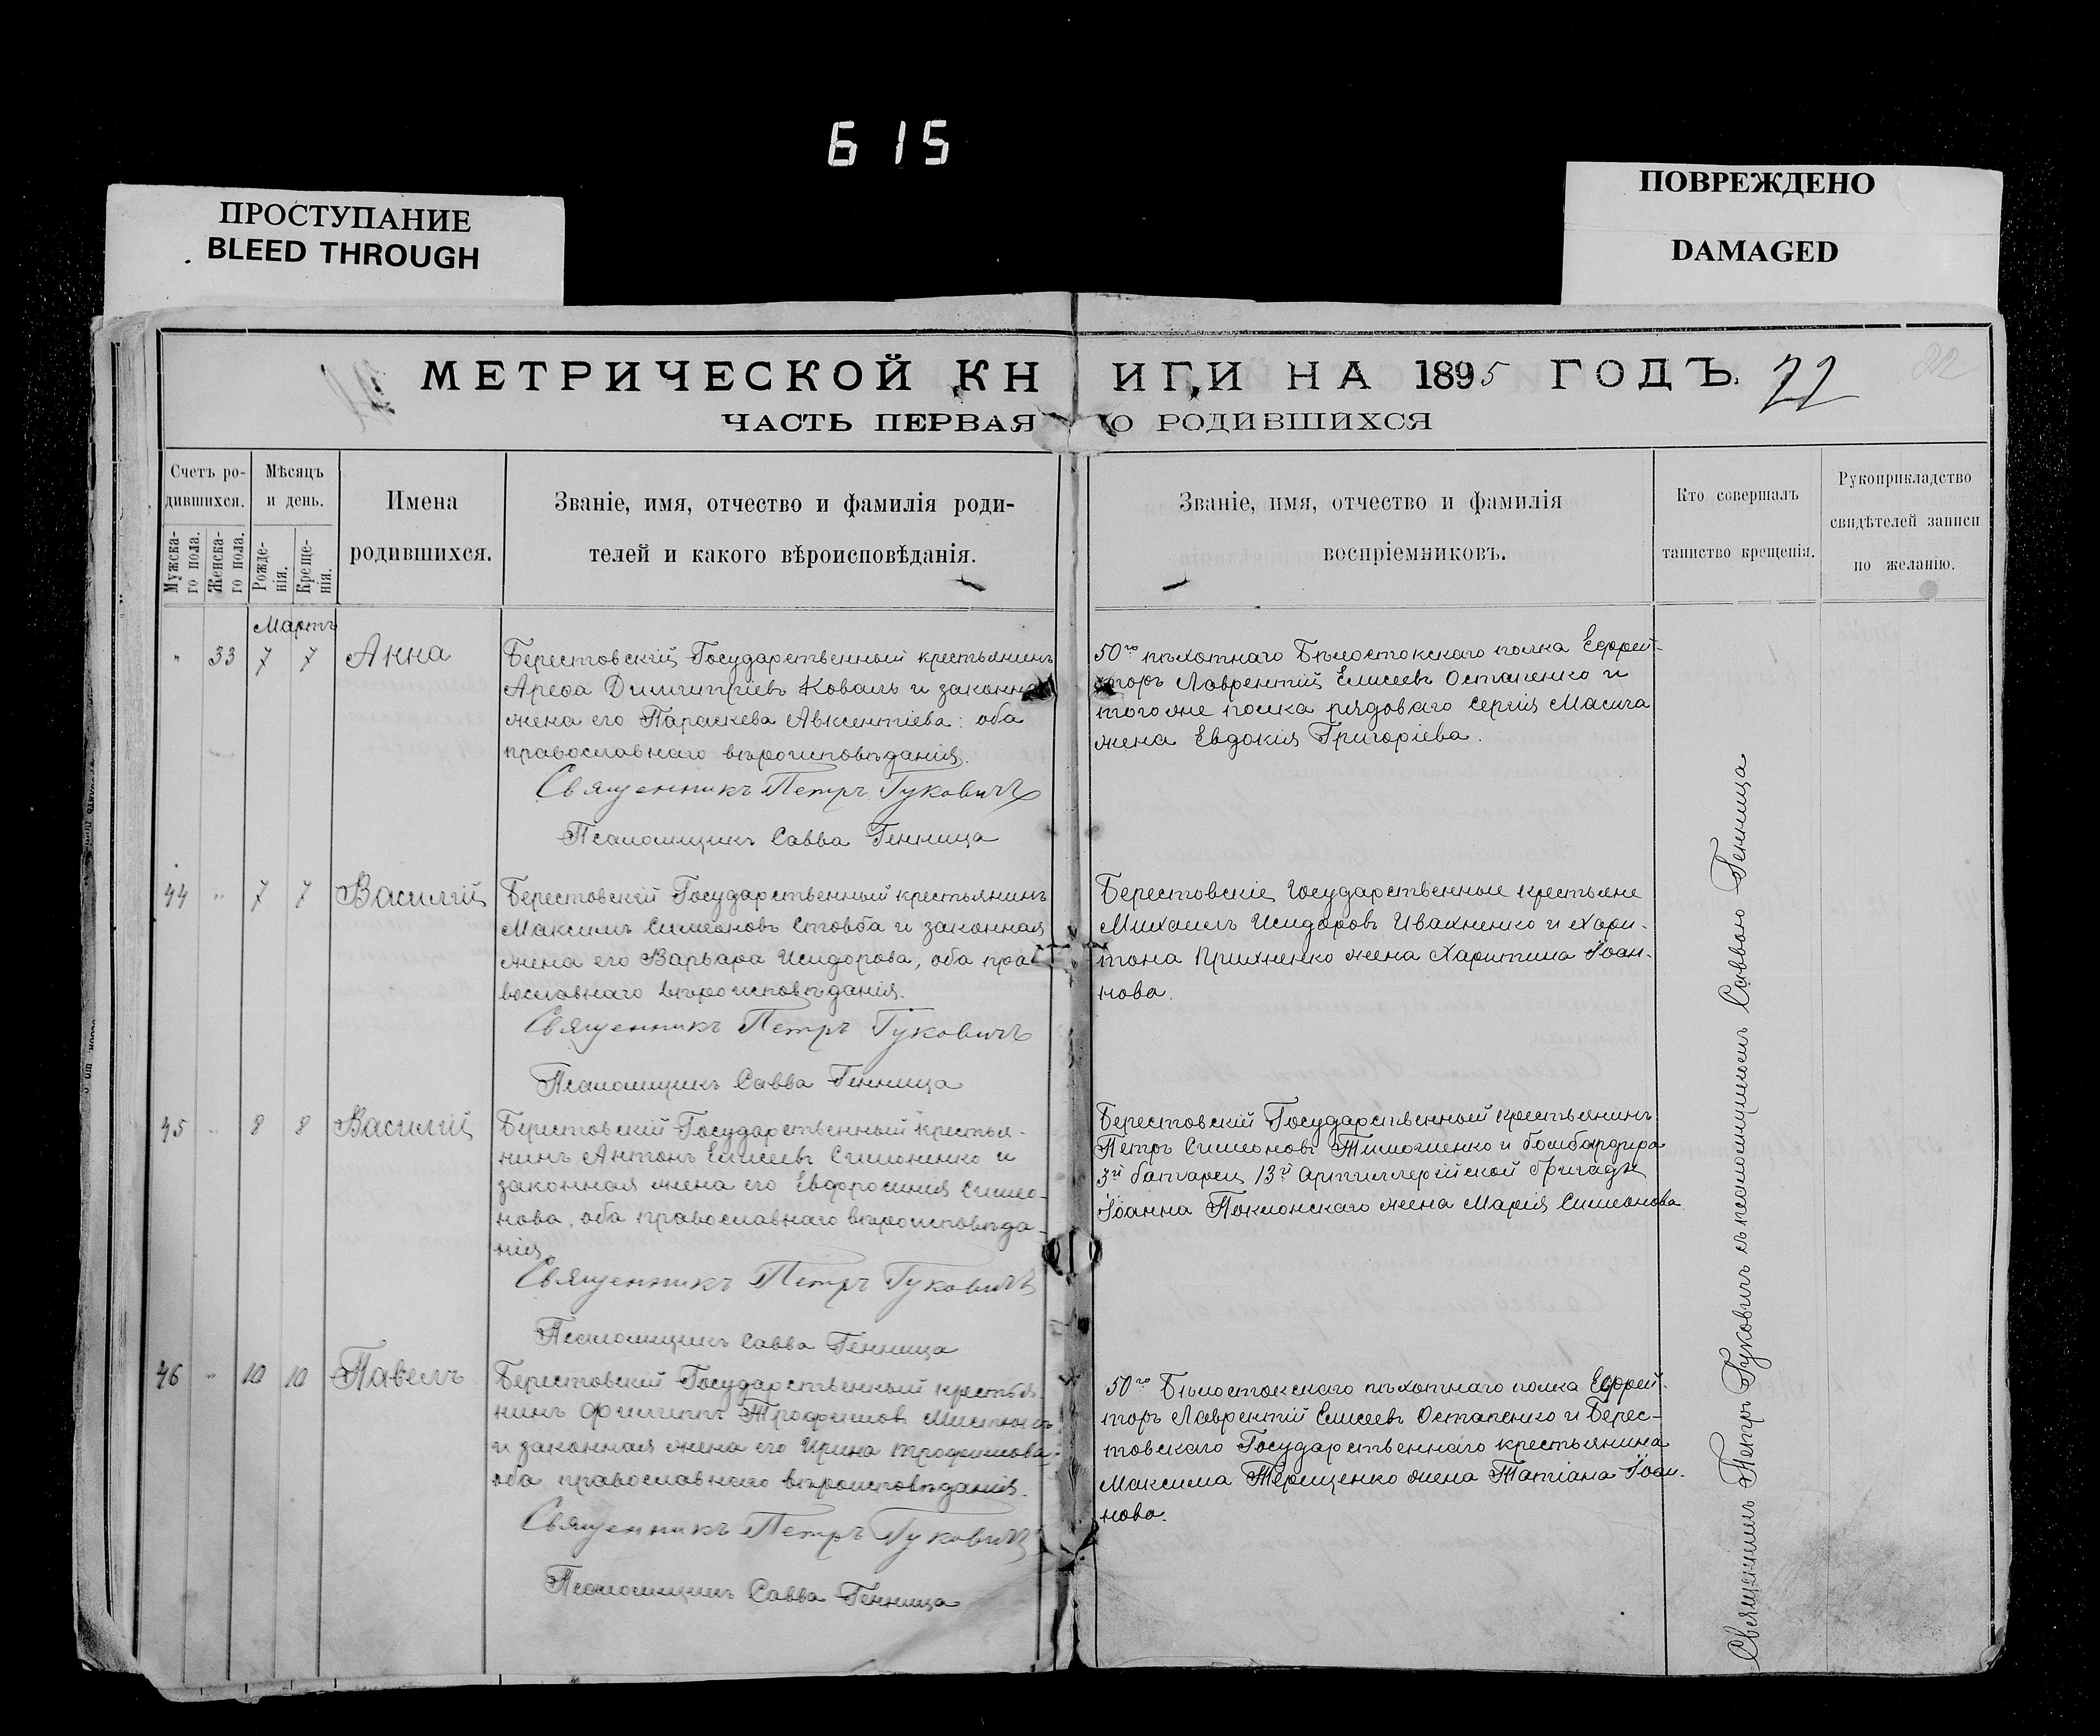 615
ПРОСТУПАНИЕ
BLEED THROUGH
ПОВРЕЖДЕНО
DAMAGED
МЕТРИЧЕСКОЙ КНИГИ НА 1895 ГОДЪ. 22
22
ЧАСТЬ ПЕРВАЯ О РОДИВШИХСЯ
Счетъ ро-
дившихся.
Мужска-
го пола.
Женска-
го пола.
Мѣсяцъ
и день.
Рожде-
нія.
Креще-
нія.
Имена
родившихся.
Званіе, имя, отчество и фамилія роди-
телей и какого вѣроисповѣданія.
Званіе, имя, отчество и фамилія
воспріемниковъ.
Кто совершалъ
таинство крещенія.
Рукоприкладство
свидѣтелей записи
по желанію.
Мартъ
" 33 7 7 Анна
Берестовскій Государственный крестьянинъ
Ареѳа Димитріевъ Коваль и законная
жена его Параскева Авксентіева: оба
православнаго вѣроисповѣданія.
Священникъ Петръ Гуковичъ
Псаломщикъ Савва Генница
50го пѣхотнаго Бѣлостокскаго полка Ефрей-
торъ Лаврентій Елисеевъ Остапенко и
того же полка рядоваго Сергія Масича
жена Евдокія Григоріева.
44 " 7 7 Василій
Берестовскій Государственный крестьянинъ
Максимъ Симеоновъ Стовба и законная
жена его Варвара Исидорова, оба пра-
вославнаго вѣроисповѣданія.
Священникъ Петръ Гуковичъ
Псаломщикъ Савва Генница
Берестовскіе Государственные крестьяне
Михаилъ Исидоровъ Ивахненко и Хари-
тона Прихненко жена Харитина Іоан-
нова.
45 " 8 8 Василій
Берестовскій Государственный крестья-
нинъ Антонъ Елисеевъ Симоненко и
законная жена его Евфросинія Симео-
нова, оба православнаго вѣроисповѣда-
нія.
Священникъ Петръ Гуковичъ
Псаломщикъ Савва Генница
Берестовскій Государственный крестьянинъ
Петръ Симеоновъ Тимошенко и бомбардира
3й батареи 13й Артиллерійской бригады
Іоанна Поклонскаго жена Марія Симеонова.
46 " 10 10 Павелъ
Берестовскій Государственный крестья
нинъ Филиппъ Трофимов
и законная жена его Ирина Трофимова:
оба православнаго вѣроисповѣданія.
Священникъ Петръ Гуковичъ
Псаломщикъ Савва Генница
50го Бѣлостокскаго пѣхотнаго полка Ефрей-
торъ Лаврентій Елисеевъ Остапенко и Берес-
товскаго Государственнаго крестьянина
Максима Терещенко жена Татіана Іоан-
нова.
Священникъ Петръ Гуковичъ съ псаломщикомъ Саввою Генница